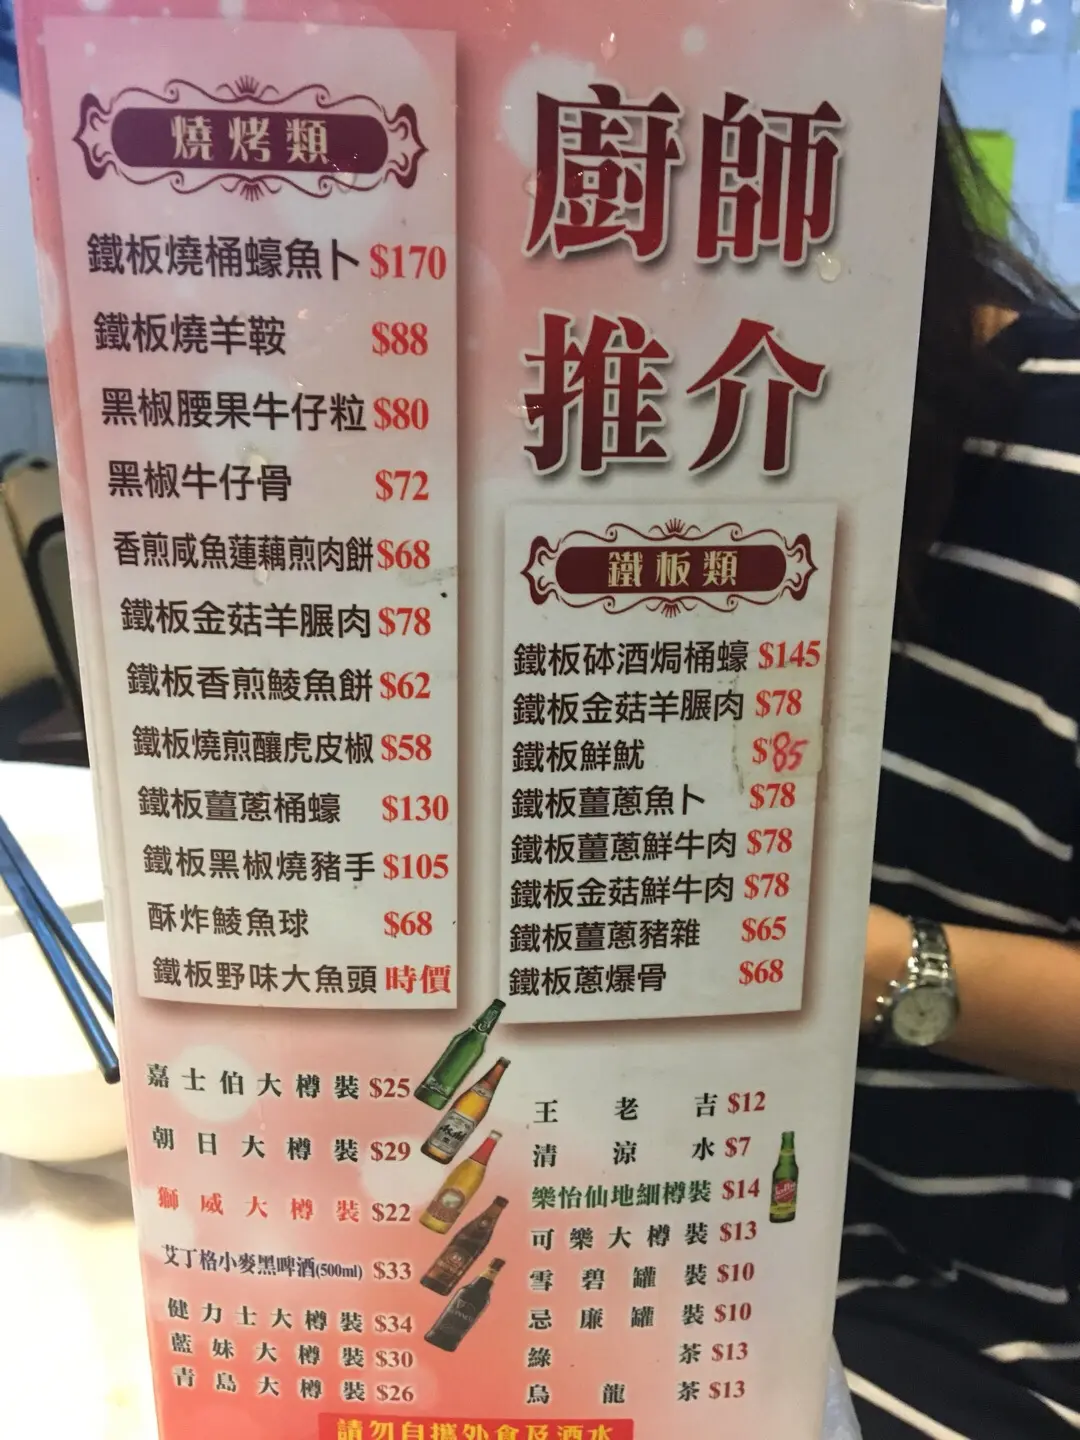 廚師
推介
燒烤類
鐵板燒桶蠔魚卜 $170
鐵板燒羊鞍 $88
黑椒腰果牛仔粒 $80
黑椒牛仔骨 $72
香煎咸魚蓮藕煎肉餅 $68
鐵板金菇羊脤肉 $78
鐵板香煎鯪魚餅 $62
鐵板燒煎釀虎皮椒 $58
鐵板薑蔥桶蠔 $130
鐵板黑椒燒豬手 $105
酥炸鯪魚球 $68
鐵板野味大魚頭 時價
鐵板類
鐵板砵酒焗桶蠔 $145
鐵板金菇羊脤肉 $78
鐵板鮮魷 $85
鐵板薑蔥魚卜 $78
鐵板薑蔥鮮牛肉 $78
鐵板金菇鮮牛肉 $78
鐵板薑蔥豬雜 $65
鐵板蔥爆骨 $68
嘉士伯大樽裝 $25
朝日大樽裝 $29
獅威大樽裝 $22
艾丁格小麥黑啤酒(500ml) $33
健力士大樽裝 $34
藍妹大樽裝 $30
青島大樽裝 $26
王老吉 $12
清涼水 $7
樂怡仙地細樽裝 $14
可樂大樽裝 $13
雪碧罐裝 $10
忌廉罐裝 $10
綠茶 $13
烏龍茶 $13
請勿自攜外食及酒水